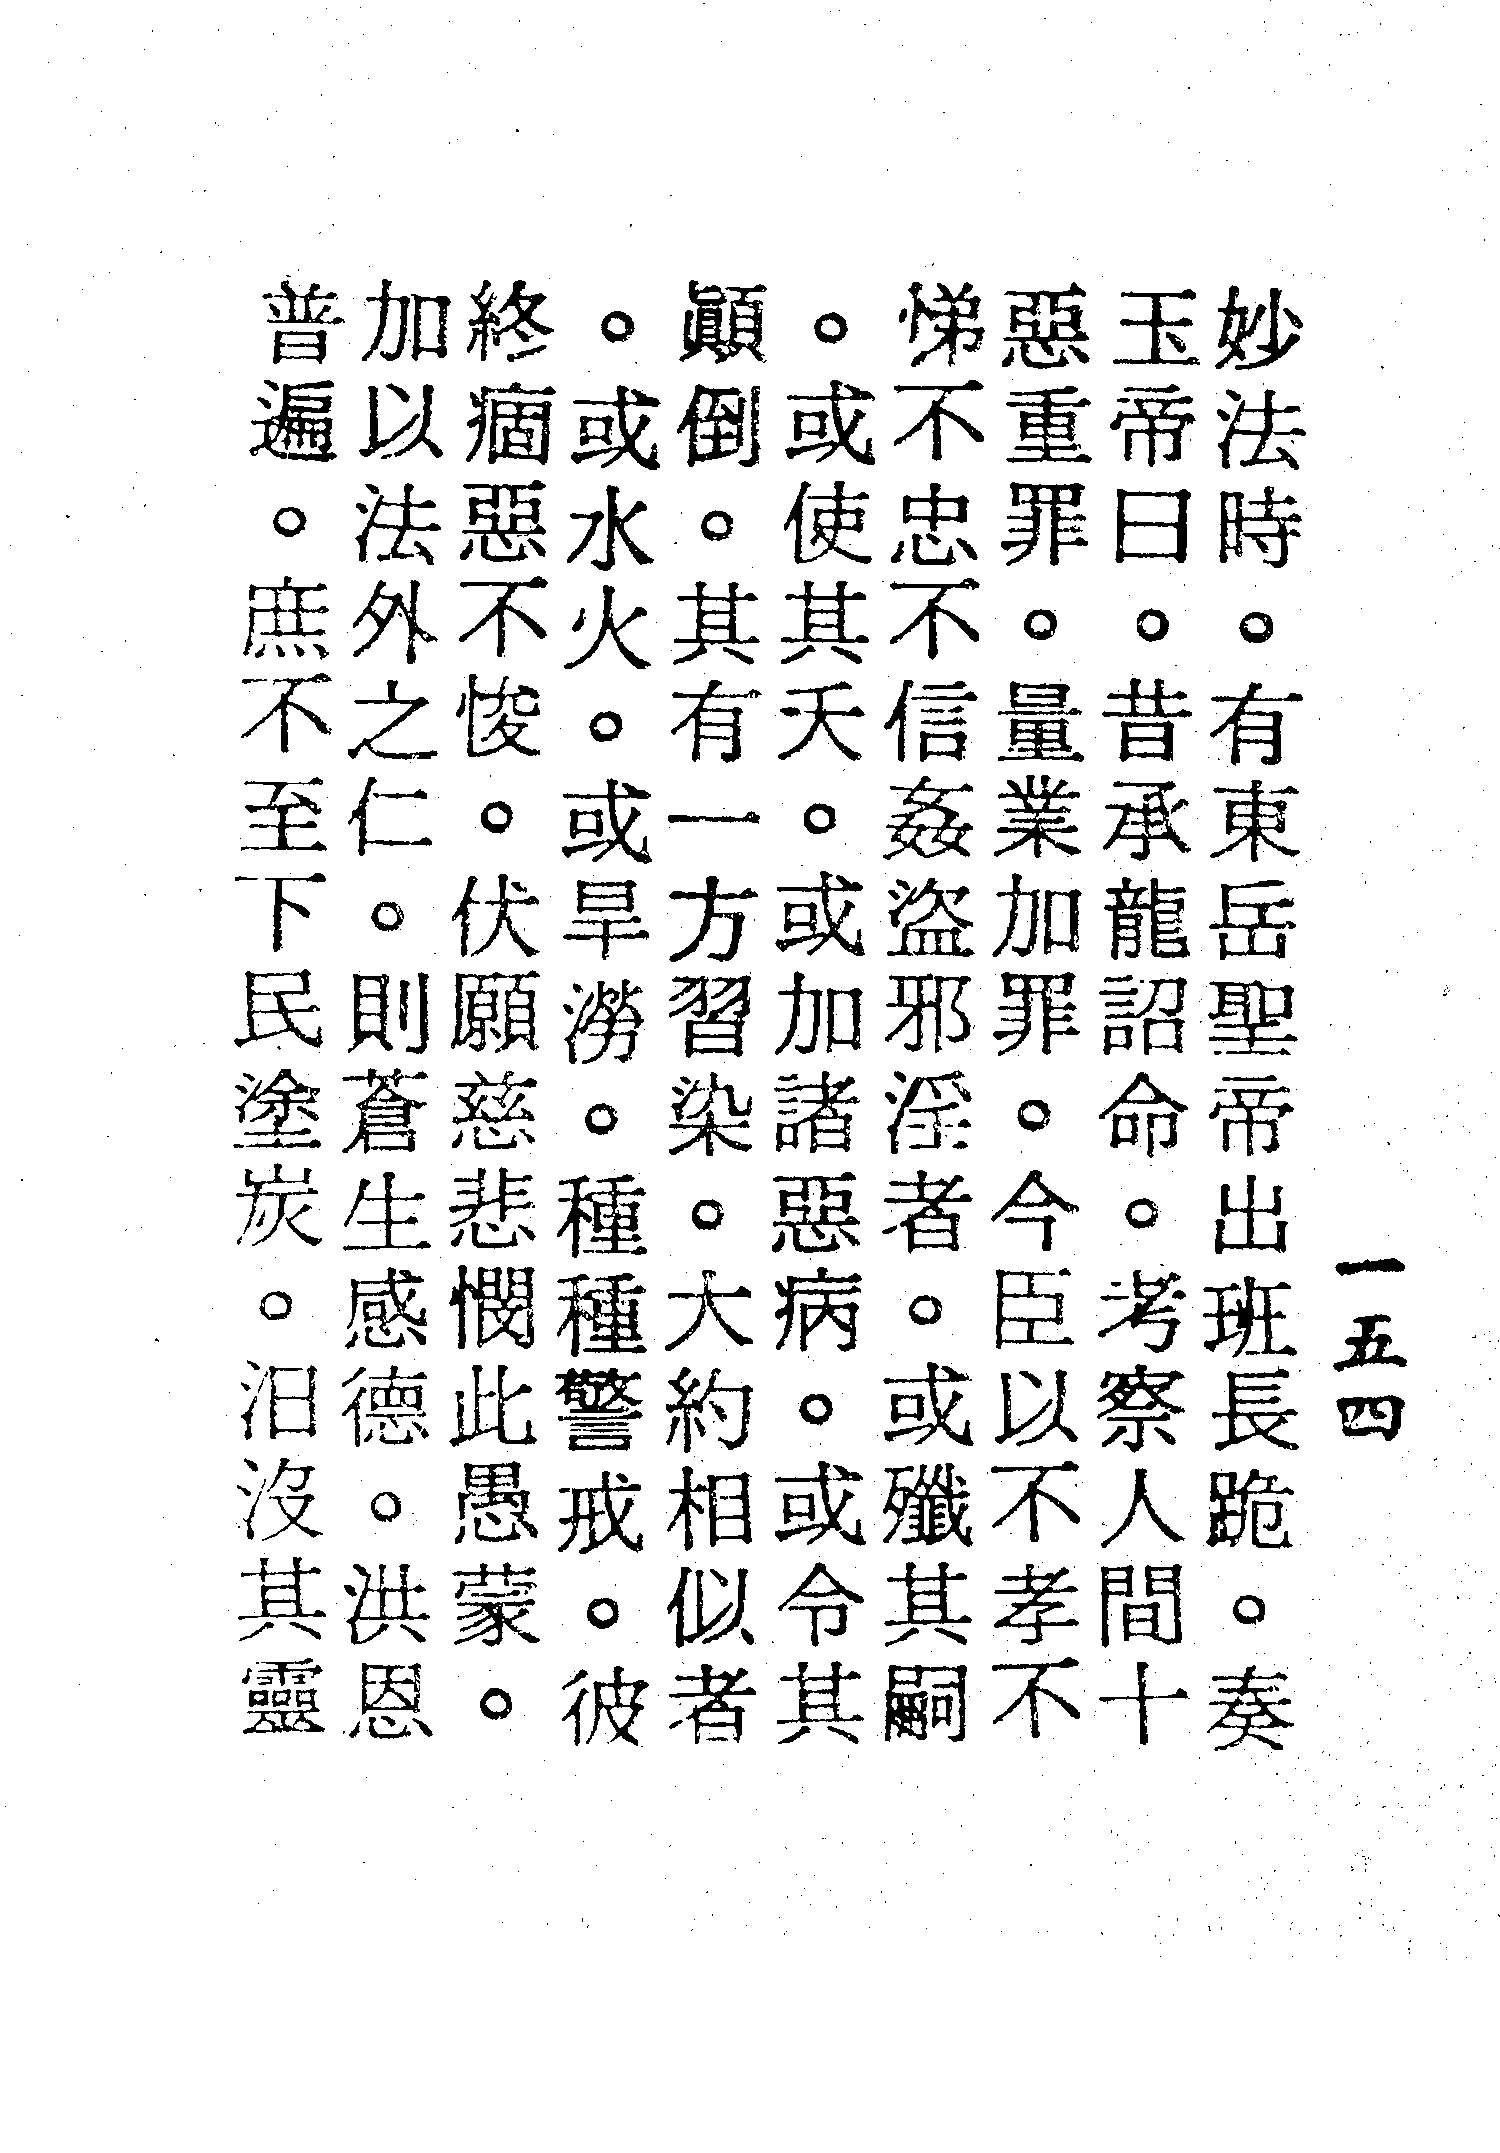 一五四
妙法時。有東岳聖帝出班長跪。奏
玉帝曰。昔承龍詔命。考察人間十
惡重罪。量業加罪。今臣以不孝不
悌不忠不信姦盜邪淫者。或殲其嗣
。或使其夭。或加諸惡病。或令其
顚倒。其有一方習染。大約相似者
。或水火。或旱澇。種種警戒。彼
終痼惡不悛。伏願慈悲憫此愚蒙。
加以法外之仁。則蒼生感德。洪恩
普遍。庶不至下民塗炭。汨沒其靈